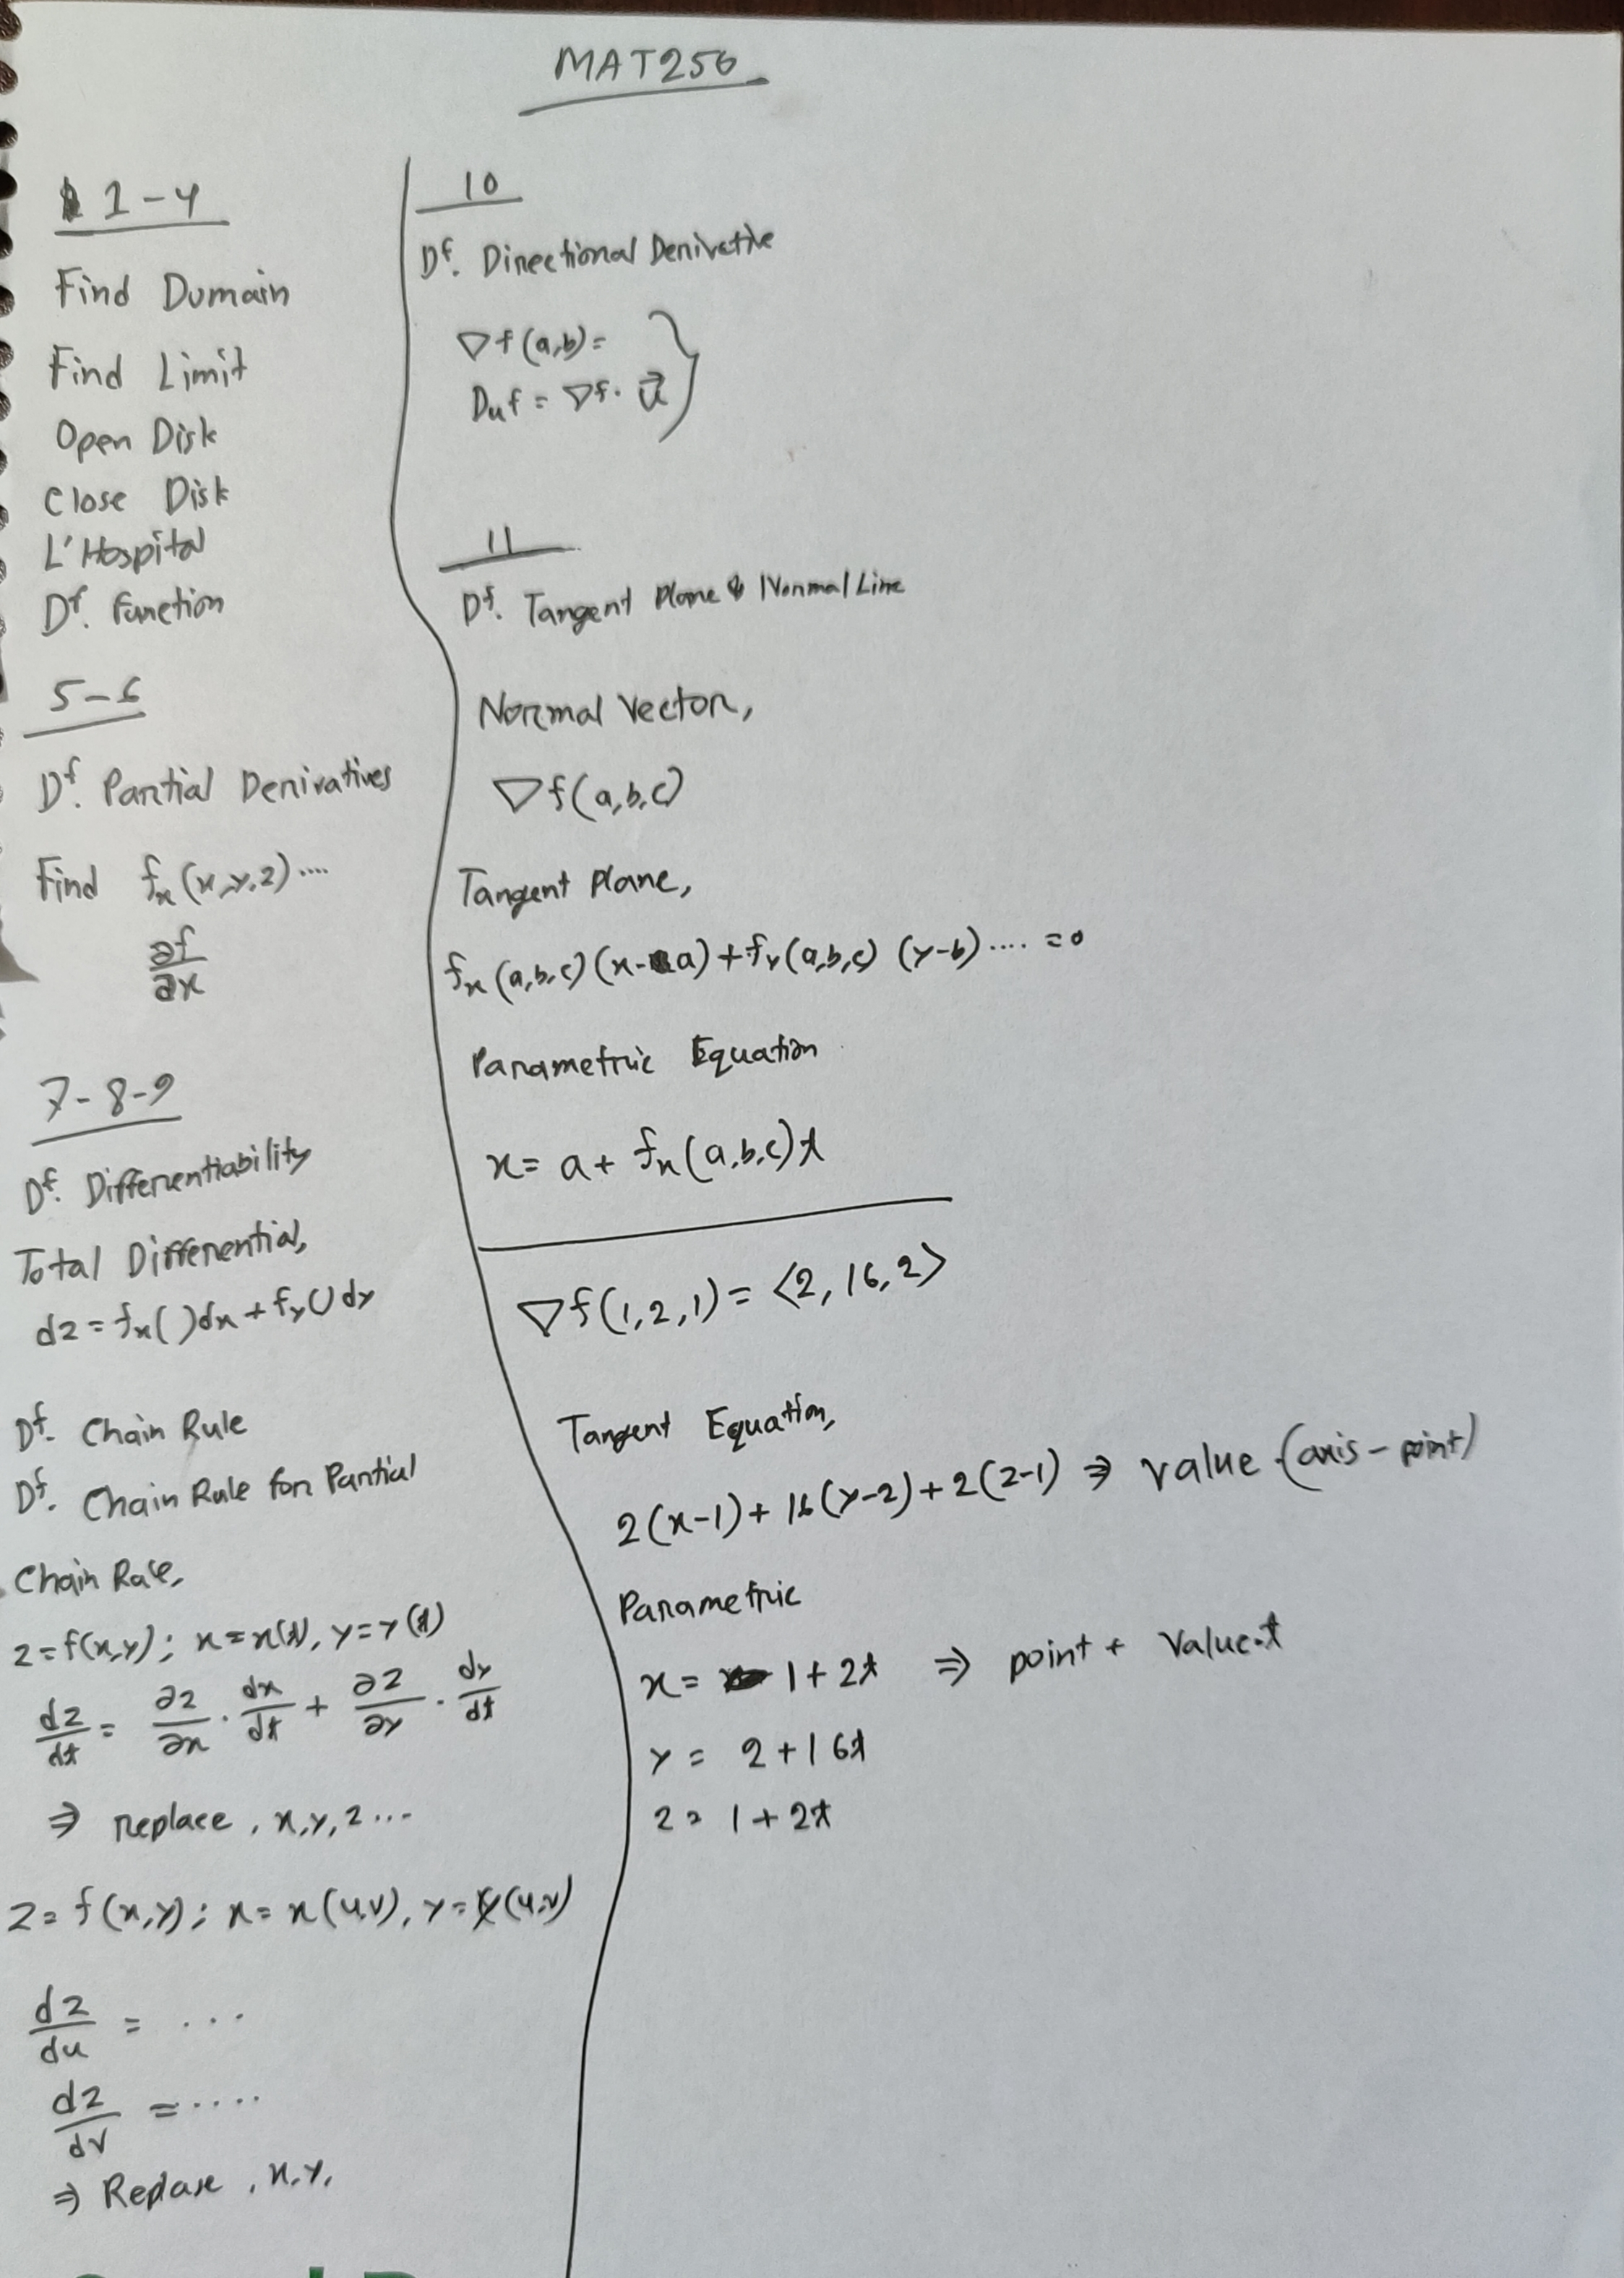 MAT250
1-4
Find Dumain
Find Limit
Open Disk
Close Disk
L'Hospital
Df. Function
5-6
Df. Partial Derivatives
Find fx(x,y,z)....
∂f/∂x
7-8-9
Df. Differentiability
Total Differential,
dz = fx( )dx + fy()dy
Df. Chain Rule
Df. Chain Rule for Partial
Chain Rule,
z=f(x,y); x=x(t), y=y(t)
dz/dt = ∂z/∂x · dx/dt + ∂z/∂y · dy/dt
⇒ replace, x,y,z...
z=f(x,y); x=x(u,v), y=y(u,v)
dz/du = ...
dz/dv = ....
⇒ Replase, x,y,
10
Df. Directional Derivative
∇f(a,b)=
Duf = ∇f. u⃗
11
Df. Tangent Plane & Normal Line
Normal Vector,
∇f(a,b,c)
Tangent Plane,
fx(a,b,c)(x-a)+fy(a,b,c)(y-b)....=0
Parametric Equation
x= a+ fx(a,b,c)t
∇f(1,2,1) = <2,16,2>
Tangent Equation,
2(x-1)+16(y-2)+2(z-1) ⇒ value.(axis-point)
Parametric
x= 1+2t ⇒ point + value.t
y= 2+16t
z= 1+2t